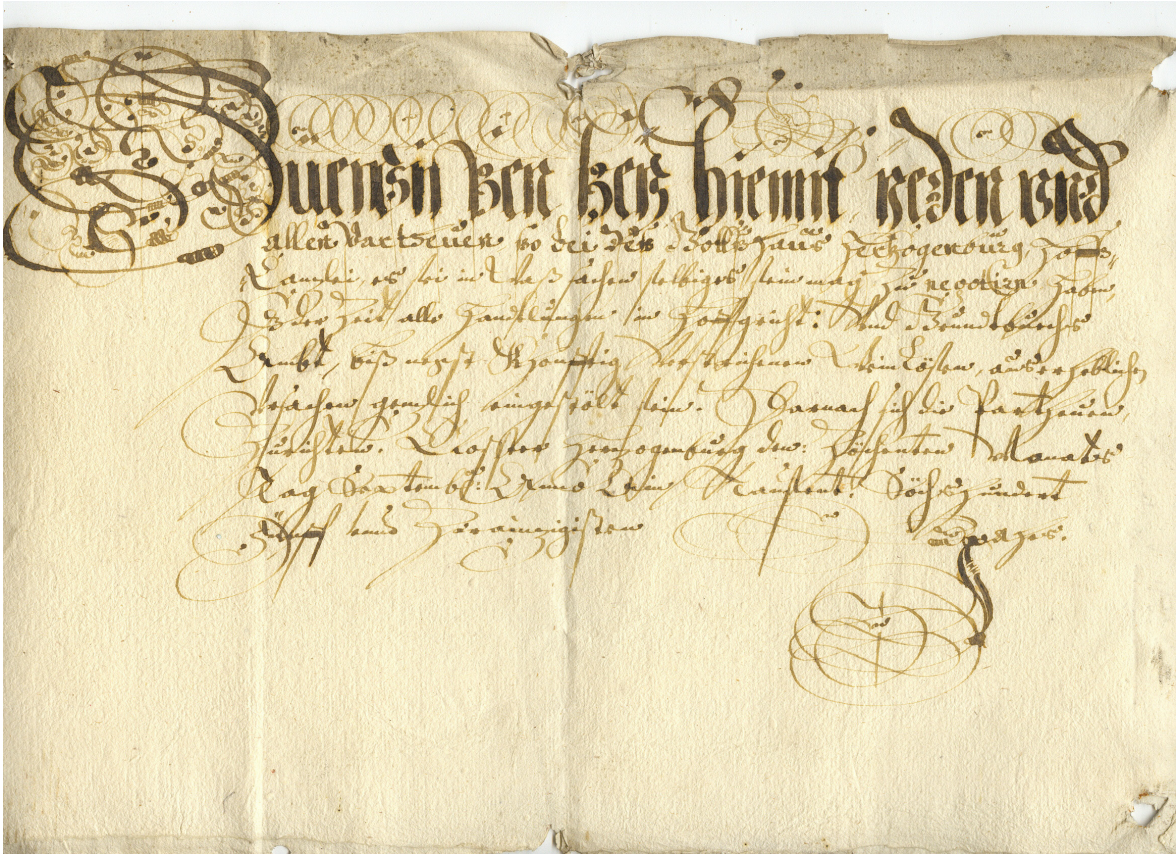 Zuewissen sey hiemit yeden vnd
allen Partheyen so bei des Gottshaus Hertzogenburg, Hoff
Canzlei, es sei in waß sachen selbiges sein mag zu negotirn haben,
Das der Zeit alle Handlungen im Hoffgericht: Vnd Grundtbuechs
Ambt, biß negst Khonfftig verstrichenen Weinlösen, aus erheblichen
Vrsachen genzlich eingestölt sein. Darnach sich die Partheyen
Zurichten. Closster Herzogenburg den: Sechenten Monats
Tag Septemb: Anno Ein Taussent: Söchs Hundert
Fünff vnd Zwainzigisten